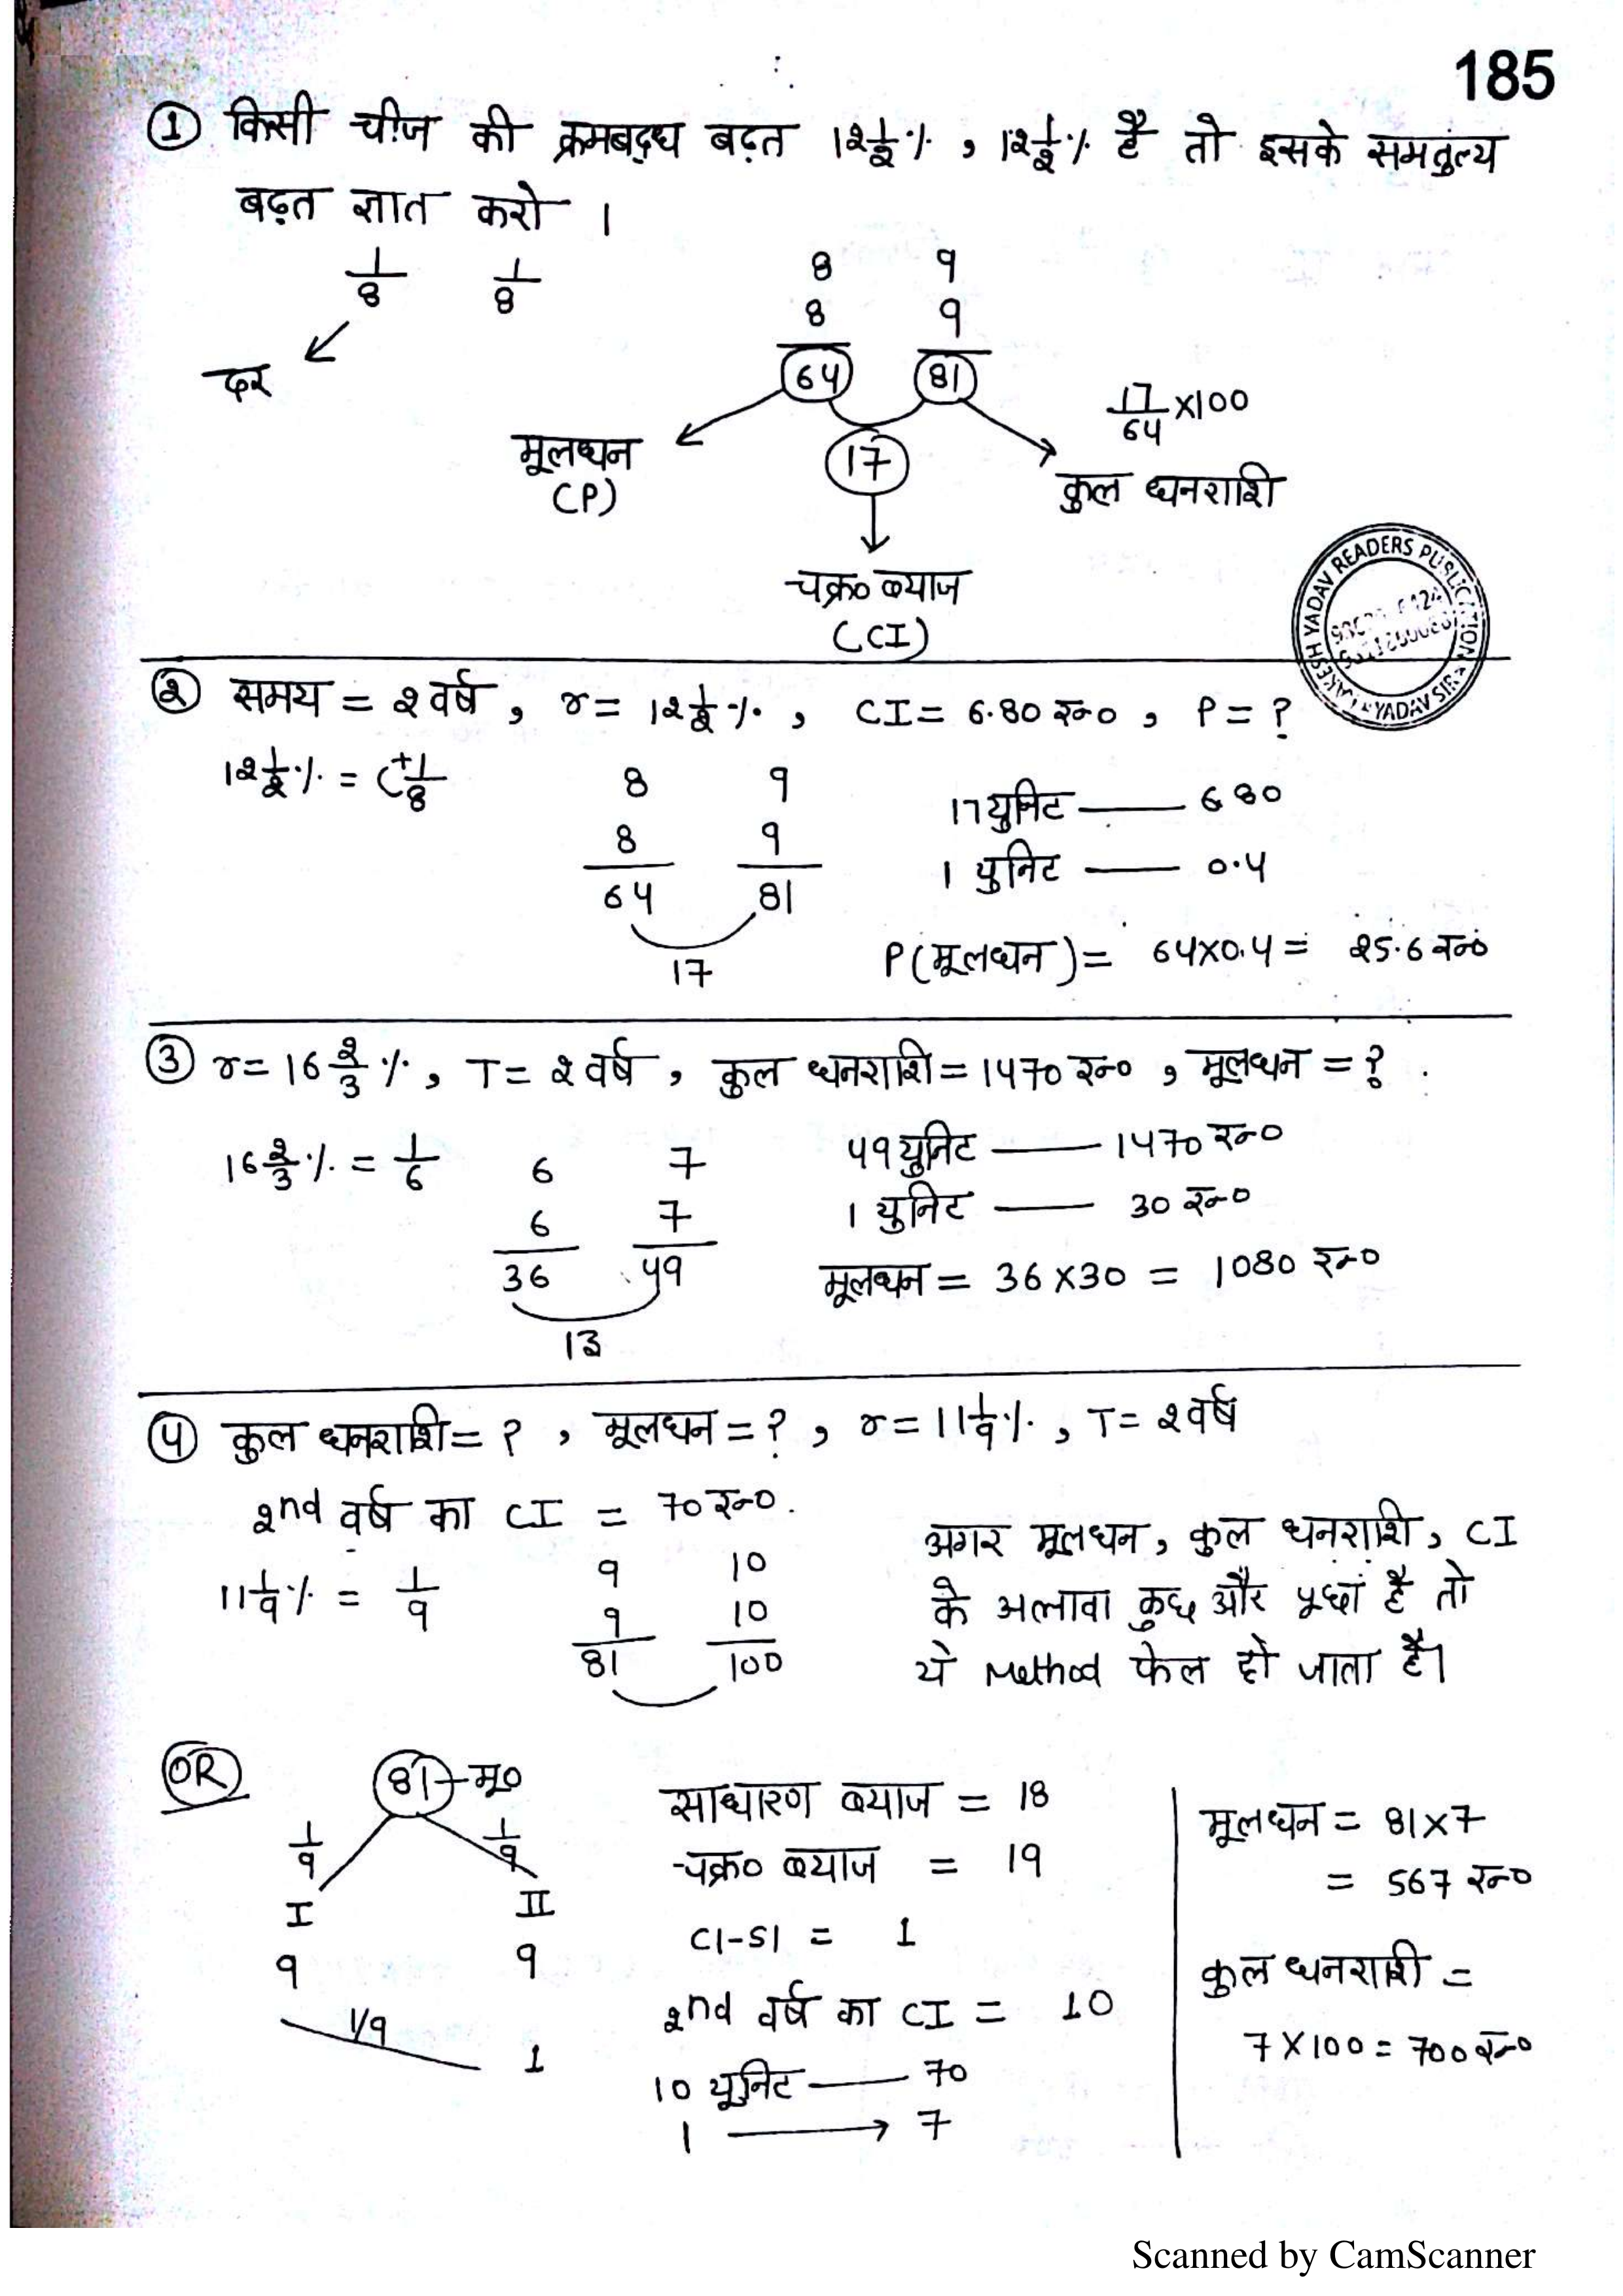 185
① किसी चीज की क्रमबद्ध बढ़त 12½%, 12½% है तो इसके समतुल्य
बढ़त ज्ञात करो ।
1/8 1/8
8 9
8 9
दर
64 81
17/64 ×100
मूलधन
(P)
17
कुल धनराशि
चक्र० ब्याज
(CI)
RAKESH YADAV READERS PUBLICATION
YADAV SIR
② समय = 2 वर्ष, r = 12½%, CI = 6.80 रू०, P = ?
12½% = +1/8
8 9
8 9
64 81
17
17 युनिट —— 680
1 युनिट —— 0.4
P(मूलधन) = 64×0.4 = 25.6 रू०
③ r = 16 2/3 %, T = 2 वर्ष, कुल धनराशि = 1470 रू०, मूलधन = ?
16 2/3 % = 1/6
6 7
6 7
36 49
13
49 युनिट —— 1470 रू०
1 युनिट —— 30 रू०
मूलधन = 36×30 = 1080 रू०
④ कुल धनराशि = ?, मूलधन = ?, r = 11 1/9 %, T = 2 वर्ष
2nd वर्ष का CI = 70 रू०.
11 1/9 % = 1/9
9 10
9 10
81 100
अगर मूलधन, कुल धनराशि, CI
के अलावा कुछ और पूछा है तो
ये Method फेल हो जाता है।
OR
81 → मू०
1/9 1/9
I II
9 9
1/9
1
साधारण ब्याज = 18
चक्र० ब्याज = 19
CI-SI = 1
2nd वर्ष का CI = 10
10 यूनिट —— 70
1 ——→ 7
मूलधन = 81×7
= 567 रू०
कुल धनराशी =
7×100 = 700 रू०
Scanned by CamScanner